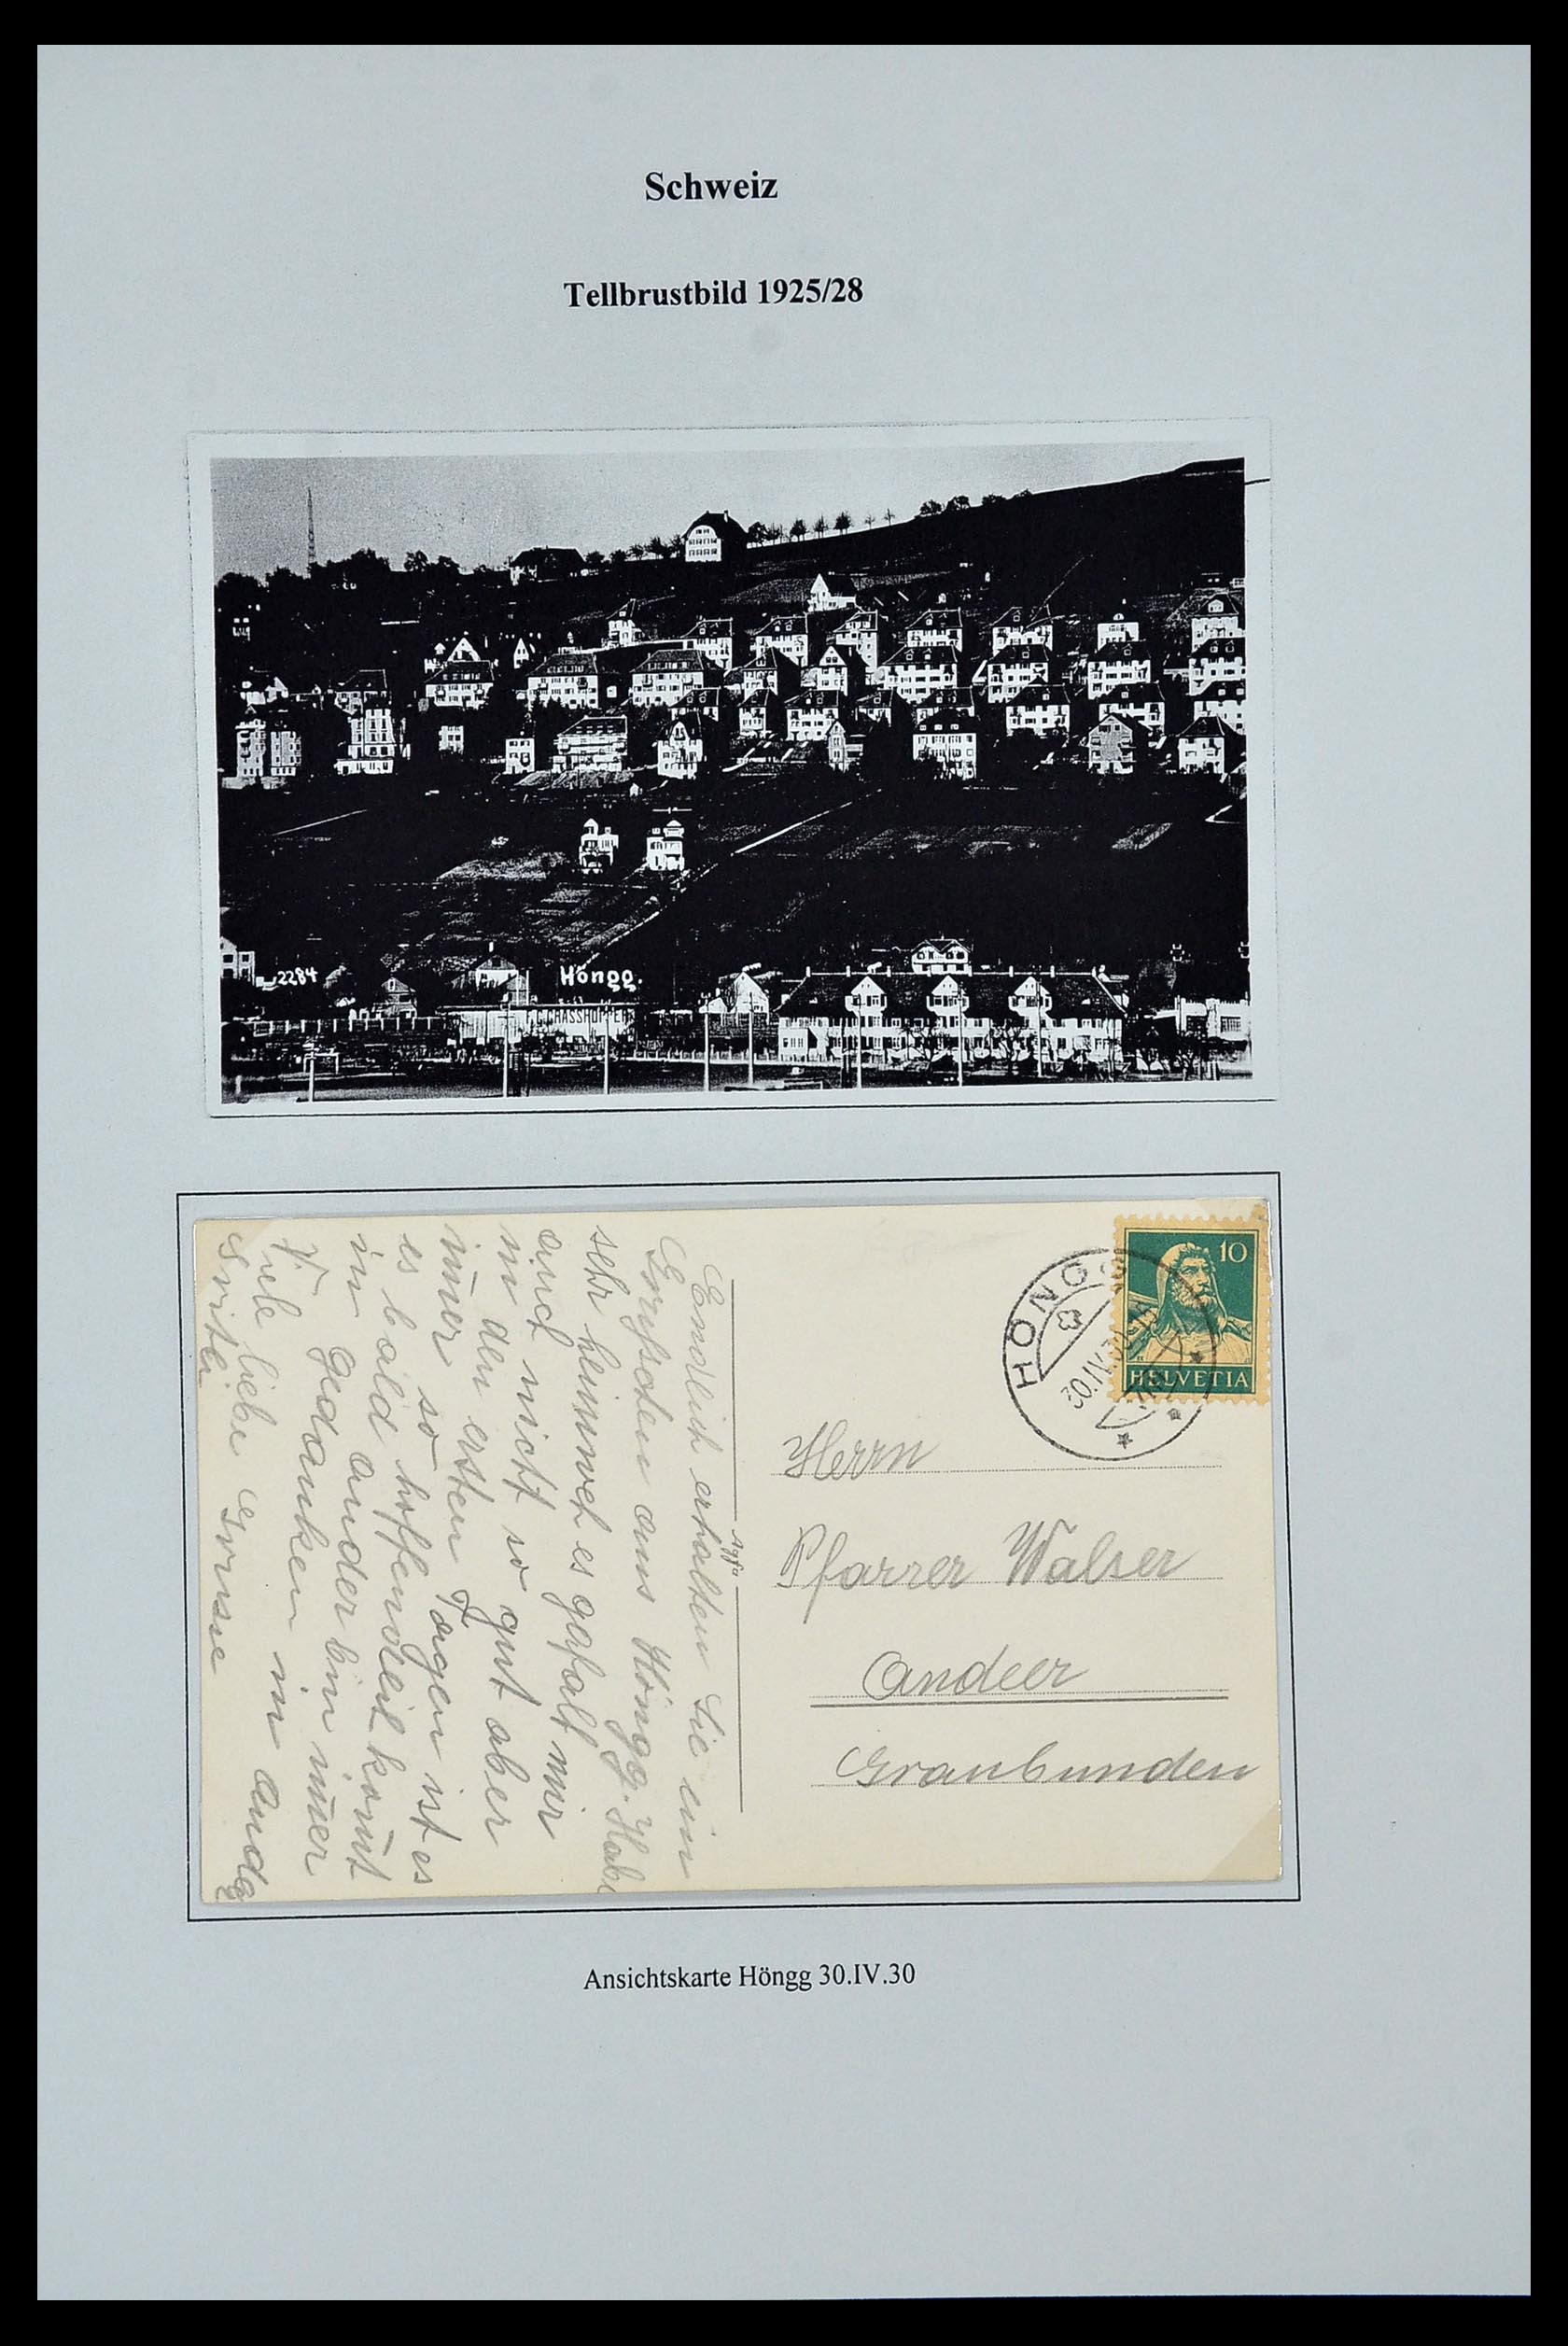 Schweiz
Tellbrustbild 1925/28
2284
Höngg.
F.C. GRASSHOPPER
HÖNGG
10
HELVETIA
Endlich erhalten Sie ein
Grüsschen aus Höngg. Habe
sehr heimweh es gefalt mir
auch nicht so gut aber
in den ersten Tagen ist es
imer so hoffendlich komt
es bald
in Gedanken bin imer
in
Viele liebe Grüsse
Agfa
Herrn
Pfarrer Walser
Andeer
Graubunden
Ansichtskarte Höngg 30.IV.30